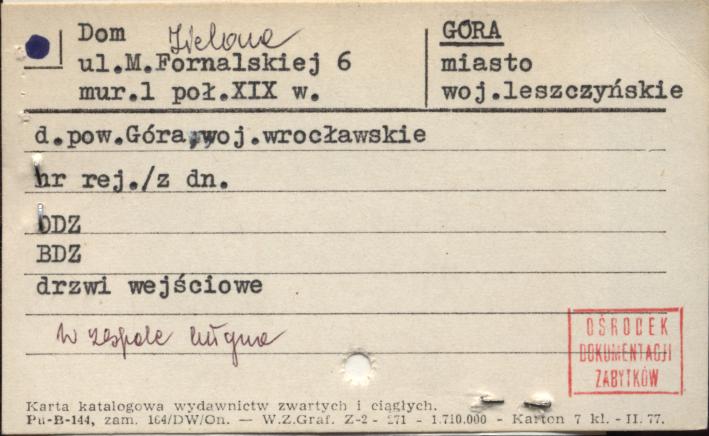 Dom Zielona
ul.M.Fornalskiej 6
mur.1 poł.XIX w.
GÓRA
miasto
woj.leszczyńskie
d.pow.Góra,woj.wrocławskie
nr rej./z dn.
ODZ
BDZ
drzwi wejściowe
W zespole
OŚRODEK
DOKUMENTACJI
ZABYTKÓW
Karta katalogowa wydawnictw zwartych i ciągłych.
Pu-B-144, zam. 164/DW/On. — W.Z.Graf. Z-2 - 271 - 1.710.000 - Karton 7 kl. - II. 77.